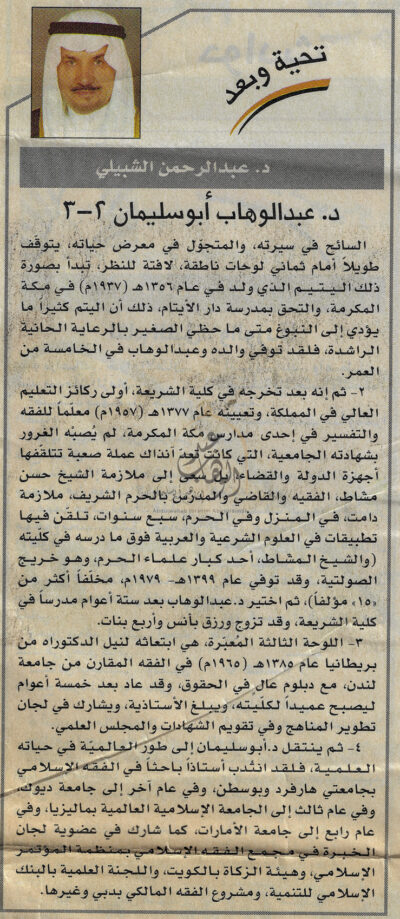 تحية وبعد
د. عبدالرحمن الشبيلي
د. عبدالوهاب أبوسليمان ٢-٣
السائح في سيرته، والمتجوّل في معرض حياته، يتوقّف
طويلاً أمام ثماني لوحات ناطقة، لافتة للنظر، تبدأ بصورة
ذلك اليتيم الذي ولد في عام ١٣٥٦هـ (١٩٣٧م) في مكة
المكرمة، والتحق بمدرسة دار الأيتام، ذلك أن اليتم كثيراً ما
يؤدي إلى النبوغ متى ما حظي الصغير بالرعاية الحانية
الراشدة، فلقد توفي والده وعبدالوهاب في الخامسة من
العمر.
٢- ثم إنه بعد تخرجه في كلية الشريعة، أولى ركائز التعليم
العالي في المملكة، وتعيينه عام ١٣٧٧هـ (١٩٥٧م) معلماً للفقه
والتفسير في إحدى مدارس مكة المكرمة، لم يُصبْه الغرور
بشهادته الجامعية، التي كانت تعد آنذاك عملة صعبة تتلقّفها
أجهزة الدولة والقضاء، بل سعى إلى ملازمة الشيخ حسن
مشاط، الفقيه والقاضي والمدرّس بالحرم الشريف، ملازمة
دامت، في المنزل وفي الحرم، سبع سنوات، تلقّن فيها
تطبيقات في العلوم الشرعية والعربية فوق ما درسه في كلّيته
(والشيخ المشاط، أحد كبار علماء الحرم، وهو خريج
الصولتية، وقد توفي عام ١٣٩٩هـ- ١٩٧٩م، مخلّفاً أكثر من
«١٥» مؤلفاً)، ثم اختير د.عبدالوهاب بعد ستة أعوام مدرساً في
كلية الشريعة، وقد تزوج ورزق بأنس وأربع بنات.
٣- اللوحة الثالثة المُعبّرة، هي ابتعاثه لنيل الدكتوراه من
بريطانيا عام ١٣٨٥هـ (١٩٦٥م) في الفقه المقارن من جامعة
لندن، مع دبلوم عال في الحقوق، وقد عاد بعد خمسة أعوام
ليصبح عميداً لكلّيته، ويبلغ الأستاذية، ويشارك في لجان
تطوير المناهج وفي تقويم الشهادات والمجلس العلمي.
٤- ثم ينتقل د.أبوسليمان إلى طور العالميّة في حياته
العلمية، فلقد انتُدب أستاذاً باحثاً في الفقه الإسلامي
بجامعتي هارفرد وبوسطن، وفي عام آخر إلى جامعة ديوك،
وفي عام ثالث إلى الجامعة الإسلامية العالمية بماليزيا، وفي
عام رابع إلى جامعة الأمارات، كما شارك في عضوية لجان
الخبرة في مجمع الفقه الإسلامي بمنظمة المؤتمر
الإسلامي، وهيئة الزكاة بالكويت، واللجنة العلمية بالبنك
الإسلامي للتنمية، ومشروع الفقه المالكي بدبي وغيرها.